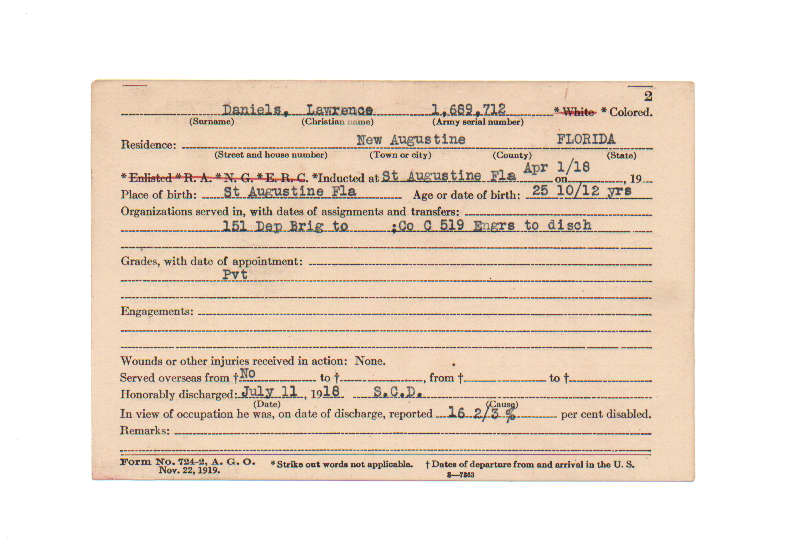 2
Daniels, Lawrence 1,689,712 *White *Colored.
(Surname) (Christian name) (Army serial number)
Residence: New Augustine FLORIDA
(Street and house number) (Town or city) (County) (State)
*Enlisted *R. A. *N. G. *E. R. C. *Inducted at St Augustine Fla on Apr 1/18, 19
Place of birth: St Augustine Fla Age or date of birth: 25 10/12 yrs
Organizations served in, with dates of assignments and transfers:
151 Dep Brig to ;Co C 519 Engrs to disch
Grades, with date of appointment:
Pvt
Engagements:
Wounds or other injuries received in action: None.
Served overseas from †No to †, from † to †
Honorably discharged: July 11, 1918 S.C.D.
(Date) (Cause)
In view of occupation he was, on date of discharge, reported 16 2/3 % per cent disabled.
Remarks:
Form No. 724-2, A. G. O. *Strike out words not applicable. †Dates of departure from and arrival in the U. S.
Nov. 22, 1919. 3—7363